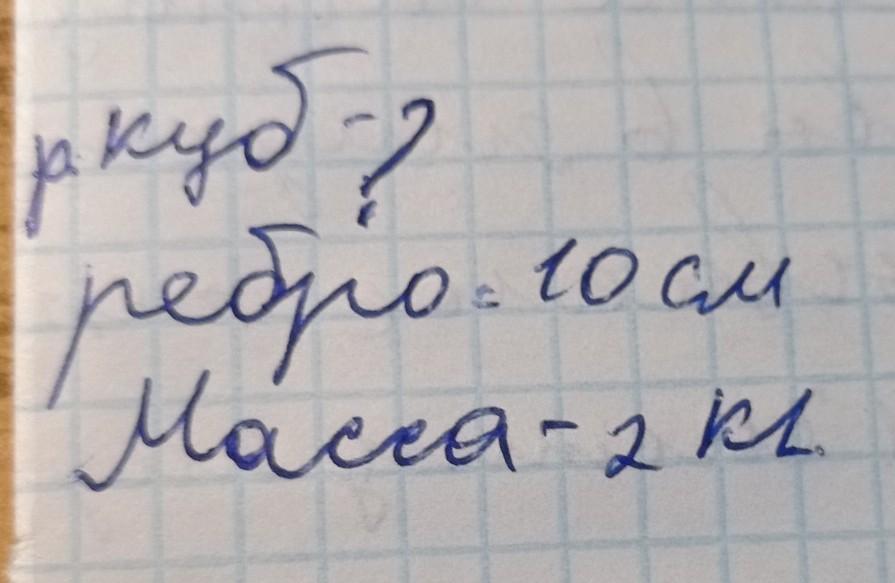 р. куб - ?
ребро = 10 см
Масса - 2 кг.